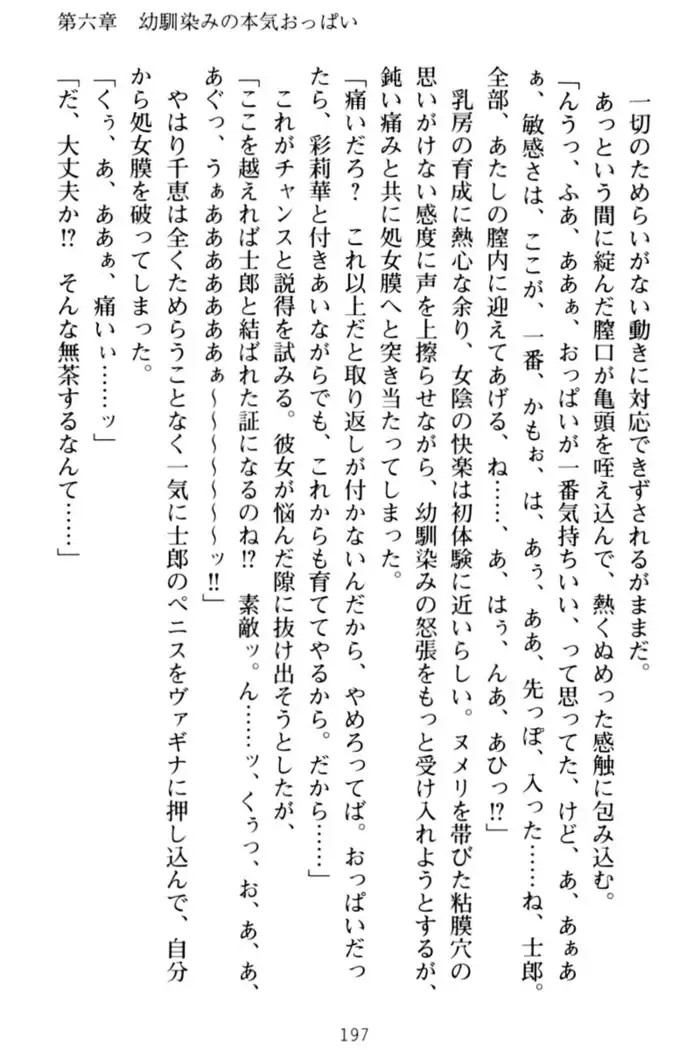 第六章　幼馴染みの本気おっぱい
一切のためらいがない動きに対応できずされるがままだ。
あっという間に綻んだ膣口が亀頭を咥え込んで、熱くぬめった感触に包み込む。
「んうっ、ふあ、ああぁ、おっぱいが一番気持ちいい、って思ってた、けど、あ、あぁあ
ぁ、敏感さは、ここが、一番、かもぉ、は、あぅ、ああ、先っぽ、入った……ね、士郎。
全部、あたしの膣内に迎えてあげる、ね……、あ、はぅ、んあ、あひっ!?」
乳房の育成に熱心な余り、女陰の快楽は初体験に近いらしい。ヌメリを帯びた粘膜穴の
思いがけない感度に声を上擦らせながら、幼馴染みの怒張をもっと受け入れようとするが、
鈍い痛みと共に処女膜へと突き当たってしまった。
「痛いだろ？　これ以上だと取り返しが付かないんだから、やめろってば。おっぱいだっ
たら、彩莉華と付きあいながらでも、これからも育ててやるから。だから……」
これがチャンスと説得を試みる。彼女が悩んだ隙に抜け出そうとしたが、
「ここを越えれば士郎と結ばれた証になるのね!?　素敵ッ。ん……ッ、くぅっ、お、あ、あ、
あぐっ、うぁああああああぁ～～～～～～ッ!!」
やはり千恵は全くためらうことなく一気に士郎のペニスをヴァギナに押し込んで、自分
から処女膜を破ってしまった。
「くぅ、あ、ああぁ、痛いぃ……ッ」
「だ、大丈夫か!?　そんな無茶するなんて……」
197